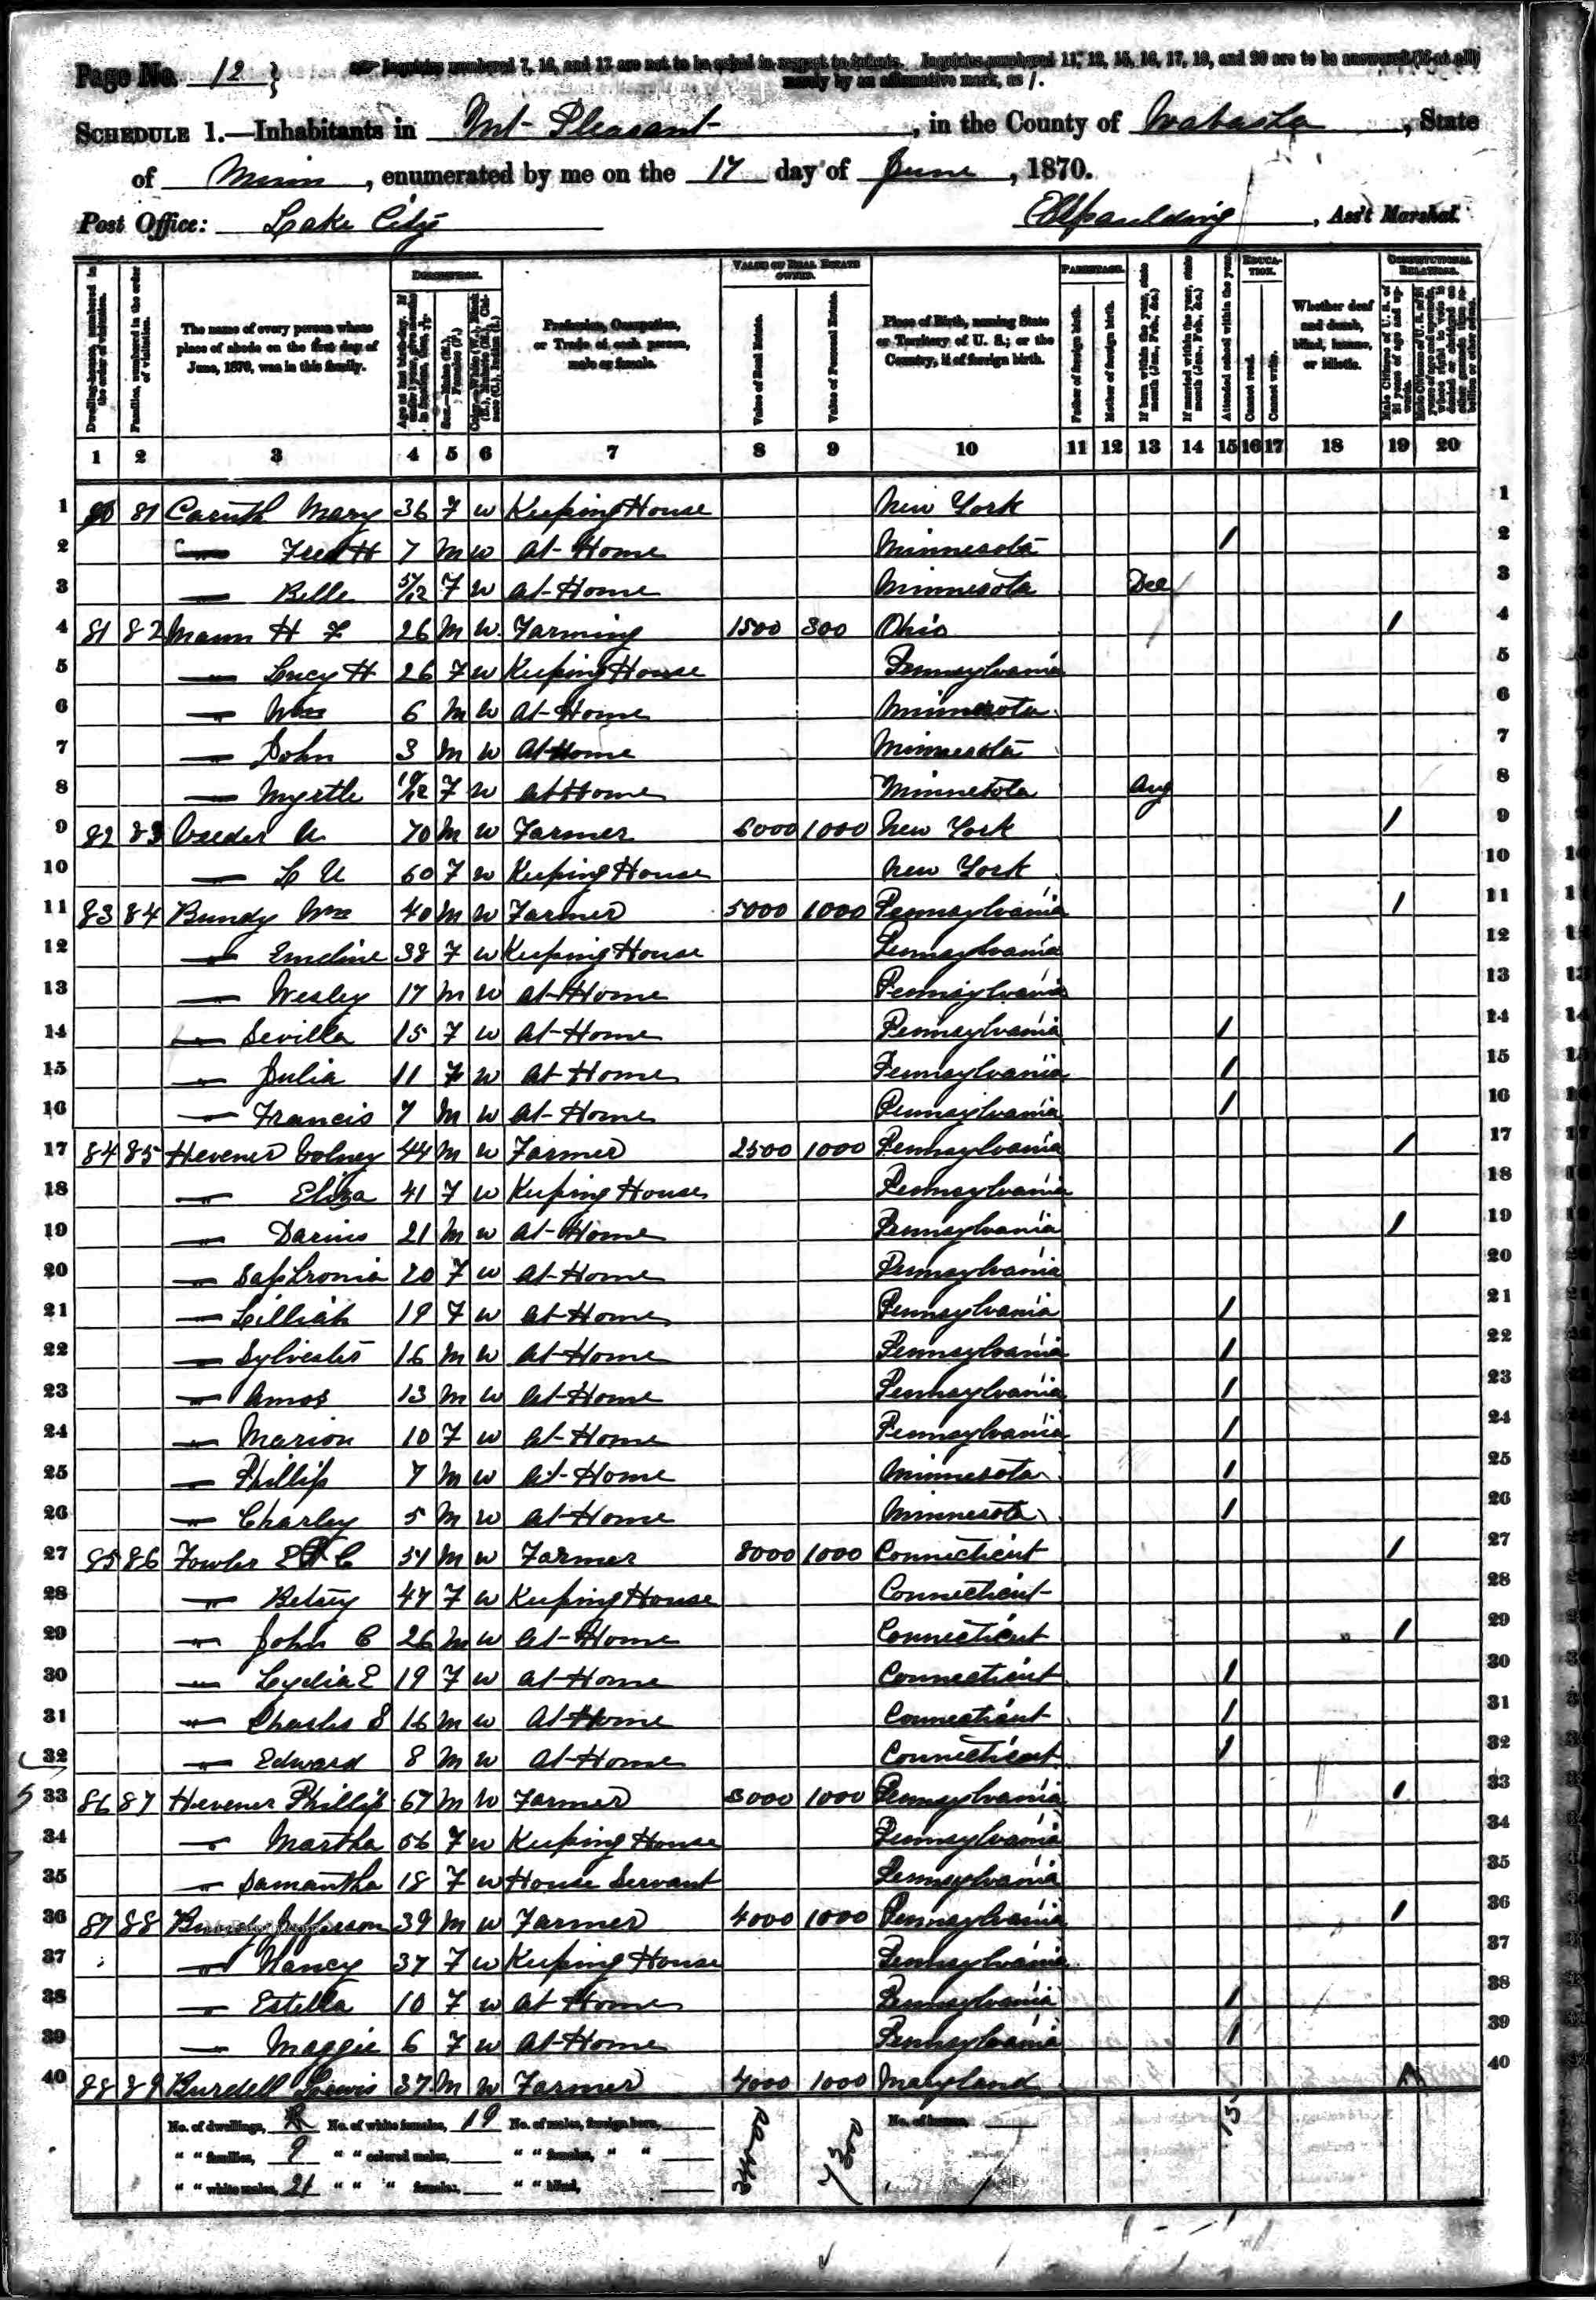 Page No. 12 } Inquiries numbered 7, 16, and 17 are not to be asked in respect to infants. Inquiries numbered 11, 12, 15, 16, 17, 19, and 20 are to be answered (if at all)
merely by an affirmative mark, as /.
SCHEDULE 1.—Inhabitants in Mt Pleasant, in the County of Wabasha, State
of Minn, enumerated by me on the 17 day of June, 1870.
Post Office: Lake City Spaulding, Ass't Marshal.
DESCRIPTION. VALUE OF REAL ESTATE OWNED. PARENTAGE. EDUCATION. CONSTITUTIONAL RELATIONS.
Dwelling-houses, numbered in the order of visitation.
Families, numbered in the order of visitation.
The name of every person whose place of abode on the first day of June, 1870, was in this family.
Age at last birth-day.
Sex.—Males (M.), Females (F.)
Profession, Occupation, or Trade of each person, male or female.
Value of Real Estate.
Value of Personal Estate.
Place of Birth, naming State or Territory of U. S.; or the Country, if of foreign birth.
Father of foreign birth.
Mother of foreign birth.
If born within the year, state month (Jan., Feb., &c.)
If married within the year, state month (Jan., Feb., &c.)
Attended school within the year.
Cannot read.
Cannot write.
Whether deaf and dumb, blind, insane, or idiotic.
Male Citizens of U. S. of 21 years of age and upwards.
1 2 3 4 5 6 7 8 9 10 11 12 13 14 15 16 17 18 19 20
1 80 81 Caruth Mary 36 F W Keeping House New York 1
2 — Fred H 7 M W At Home Minnesota / 2
3 — Belle 5/12 F W At Home Minnesota Dec 3
4 81 82 Mann H F 26 M W Farming 1500 300 Ohio / 4
5 — Lucy H 26 F W Keeping House Pennsylvania 5
6 — Wm 6 M W At Home Minnesota 6
7 — John 3 M W At Home Minnesota 7
8 — Myrtle 10/12 F W At Home Minnesota Aug 8
9 82 83 Veeder 70 M W Farmer 6000 1000 New York / 9
10 — 60 F W Keeping House New York 10
11 83 84 Bundy Wm 40 M W Farmer 5000 1000 Pennsylvania / 11
12 — Emeline 38 F W Keeping House Pennsylvania 12
13 — Wesley 17 M W At Home Pennsylvania 13
14 — Sevilla 15 F W At Home Pennsylvania / 14
15 — Julia 11 F W At Home Pennsylvania / 15
16 — Francis 7 M W At Home Pennsylvania / 16
17 84 85 Hevener Volney 44 M W Farmer 2500 1000 Pennsylvania / 17
18 — Eliza 41 F W Keeping House Pennsylvania 18
19 — Darius 21 M W At Home Pennsylvania / 19
20 — Saphronia 20 F W At Home Pennsylvania 20
21 — Lilliah 19 F W At Home Pennsylvania / 21
22 — Sylvester 16 M W At Home Pennsylvania / 22
23 — Amos 13 M W At Home Pennsylvania / 23
24 — Marion 10 F W At Home Pennsylvania / 24
25 — Phillip 7 M W At Home Minnesota / 25
26 — Charley 5 M W At Home Minnesota / 26
27 85 86 Fowler E C 54 M W Farmer 8000 1000 Connecticut / 27
28 — Betsey 47 F W Keeping House Connecticut 28
29 — John C 26 M W At Home Connecticut / 29
30 — Lydia E 19 F W At Home Connecticut / 30
31 — Charles S 16 M W At Home Connecticut / 31
32 — Edward 8 M W At Home Connecticut / 32
33 86 87 Hevener Phillip 67 M W Farmer 3000 1000 Pennsylvania / 33
34 — Martha 56 F W Keeping House Pennsylvania 34
35 — Samantha 18 F W House Servant Pennsylvania 35
36 87 88 Bundy Jefferson 39 M W Farmer 4000 1000 Pennsylvania / 36
37 — Nancy 37 F W Keeping House Pennsylvania 37
38 — Estella 10 F W At Home Pennsylvania / 38
39 — Maggie 6 F W At Home Pennsylvania / 39
40 88 89 Burdell Lewis 37 M W Farmer 4000 1000 Maryland 40
No. of dwellings, No. of white females, 19 No. of males, foreign born, 7300 15
" " families, 9 " " colored males, " " females, " "
" " white males, 21 " " " females, " " blind,